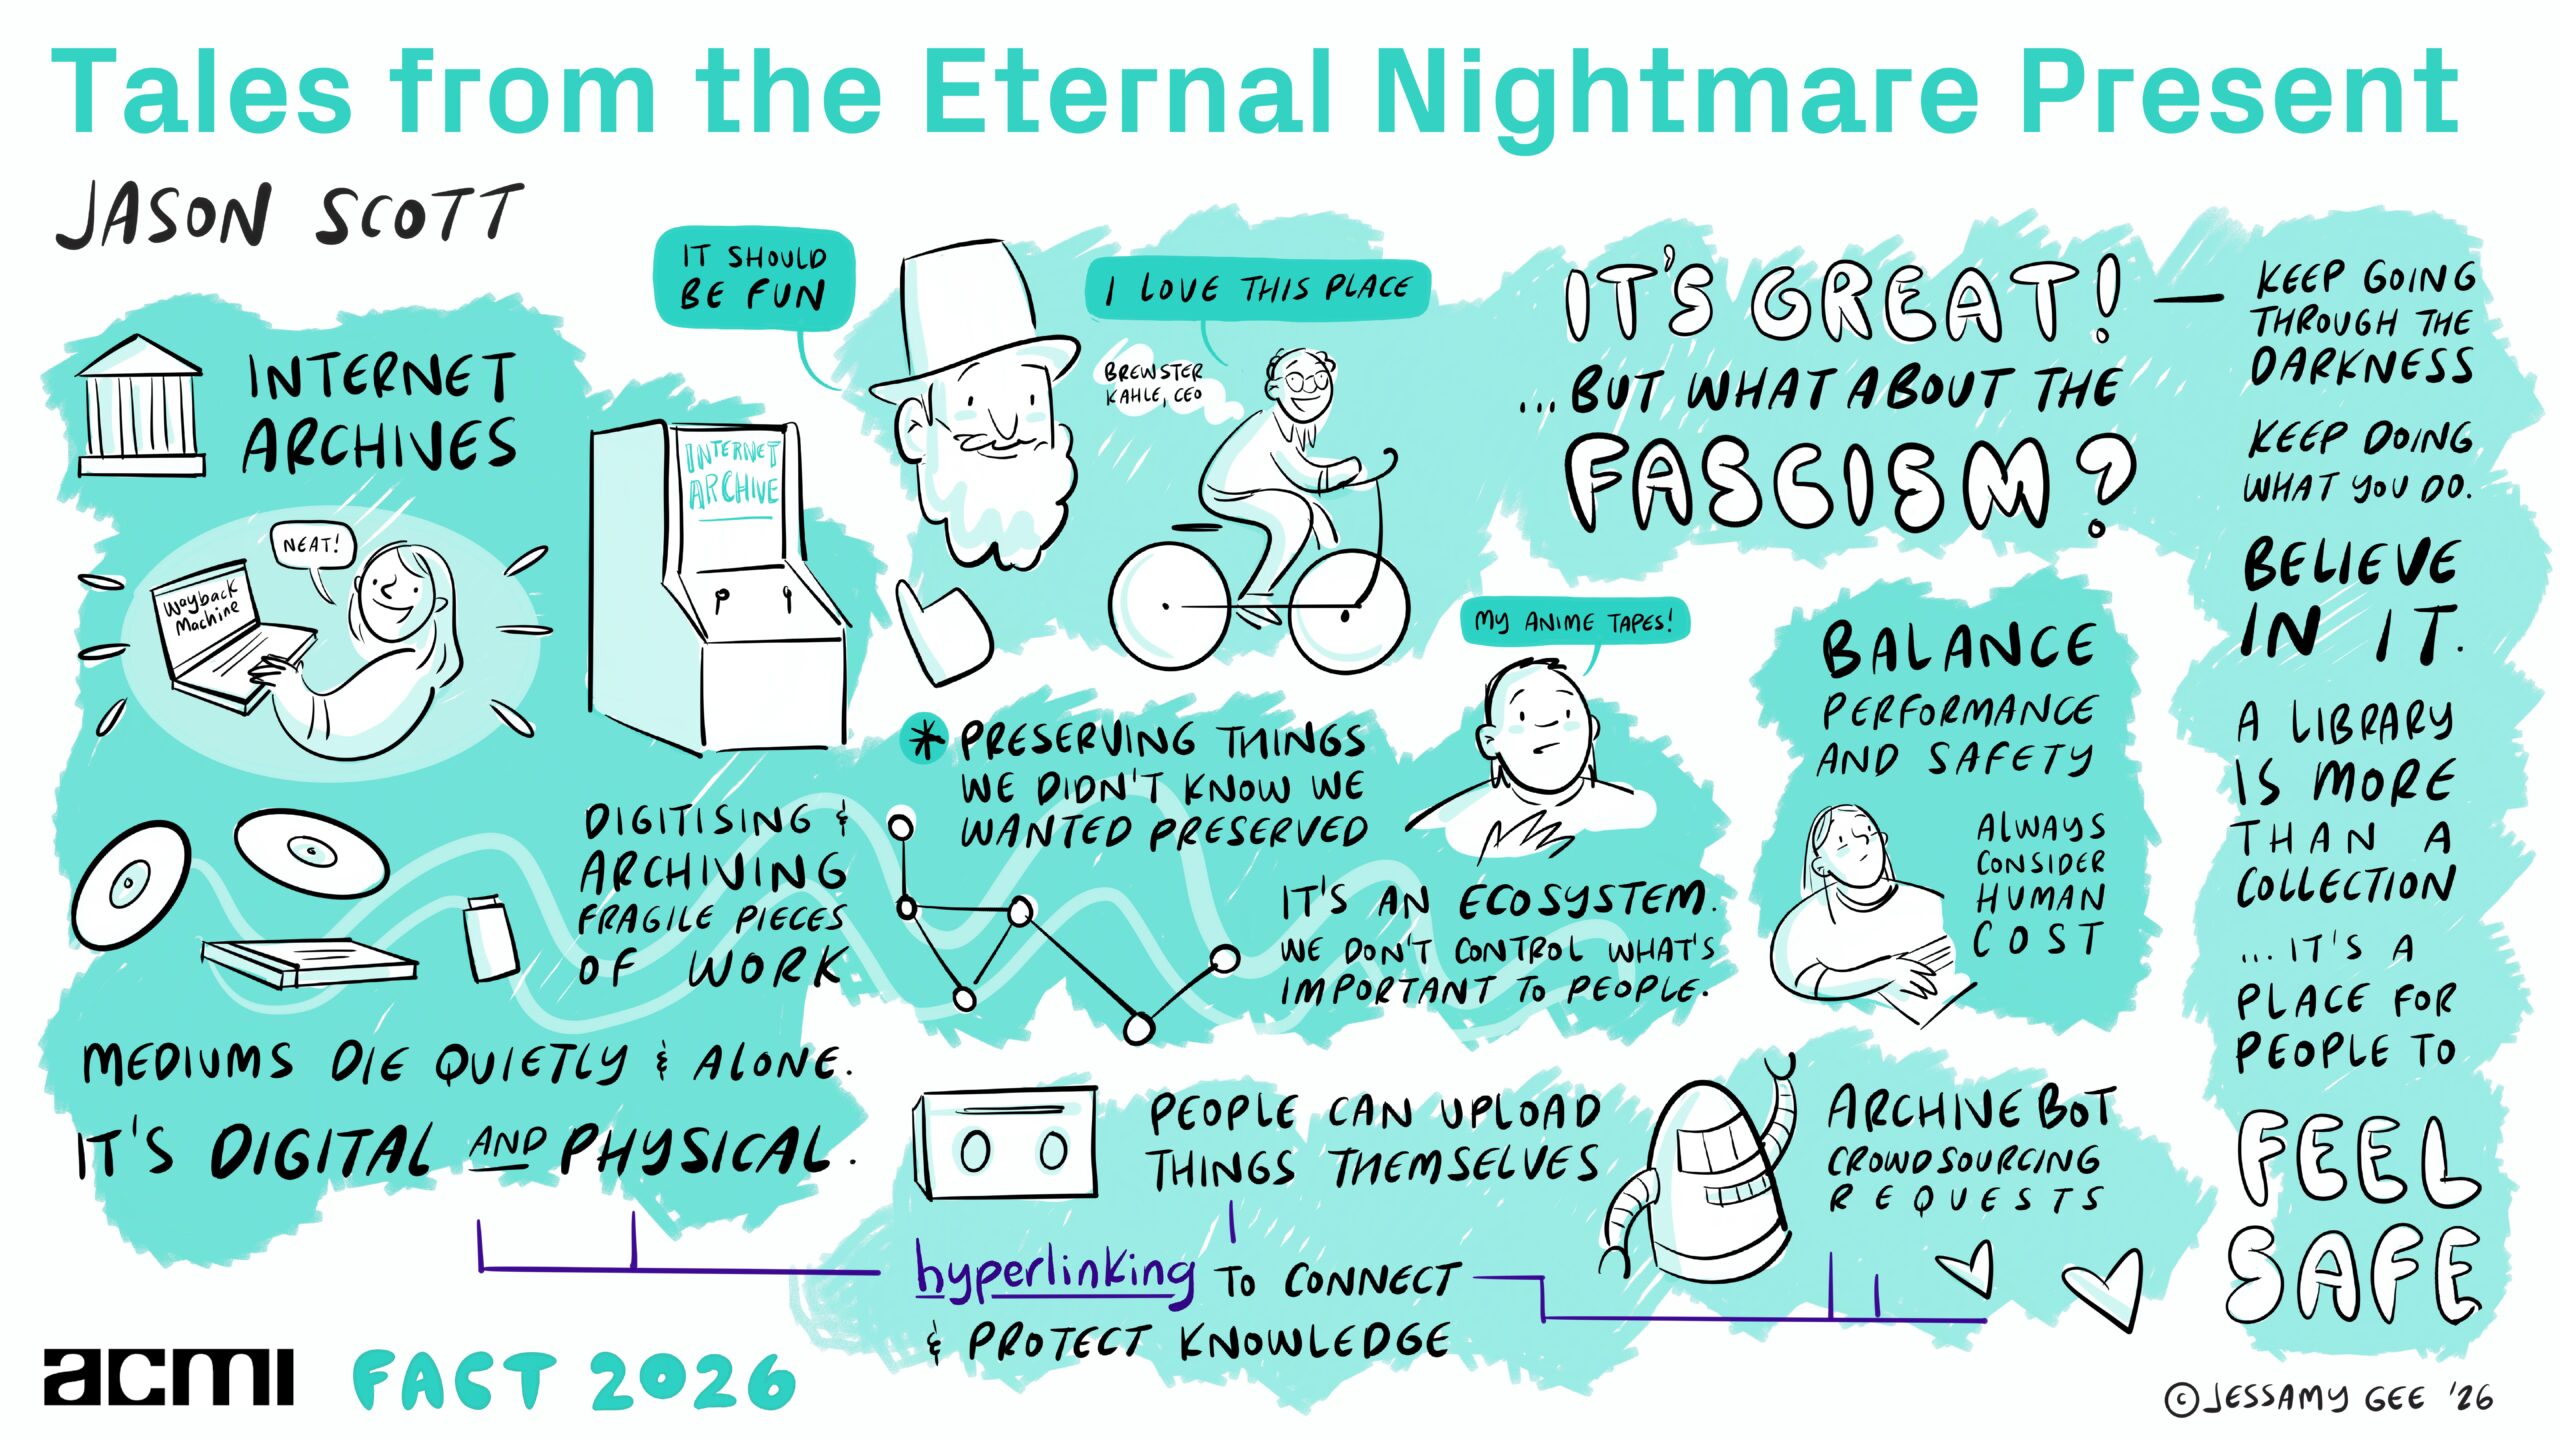 Tales from the Eternal Nightmare Present
JASON SCOTT
INTERNET
ARCHIVES
NEAT!
Wayback
Machine
INTERNET
ARCHIVE
IT SHOULD
BE FUN
I LOVE THIS PLACE
BREWSTER
KAHLE, CEO
DIGITISING &
ARCHIVING
FRAGILE PIECES
OF WORK
MEDIUMS DIE QUIETLY & ALONE.
IT'S DIGITAL AND PHYSICAL.
* PRESERVING THINGS
WE DIDN'T KNOW WE
WANTED PRESERVED
MY ANIME TAPES!
IT'S AN ECOSYSTEM.
WE DON'T CONTROL WHAT'S
IMPORTANT TO PEOPLE.
PEOPLE CAN UPLOAD
THINGS THEMSELVES
hyperlinking TO CONNECT
& PROTECT KNOWLEDGE
IT'S GREAT!
...BUT WHAT ABOUT THE
FASCISM?
BALANCE
PERFORMANCE
AND SAFETY
ALWAYS
CONSIDER
HUMAN
COST
ARCHIVE BOT
CROWDSOURCING
REQUESTS
— KEEP GOING
THROUGH THE
DARKNESS
KEEP DOING
WHAT YOU DO.
BELIEVE
IN IT.
A LIBRARY
IS MORE
THAN A
COLLECTION
...IT'S A
PLACE FOR
PEOPLE TO
FEEL
SAFE
acmi FACT 2026
©JESSAMY GEE '26